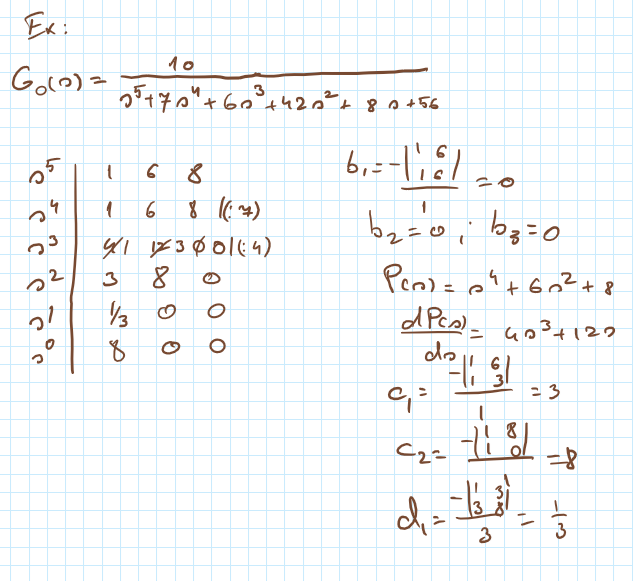 Ex:
G₀(s) = 10 / (s⁵+7s⁴+6s³+42s²+8s+56)
s⁵ | 1 6 8
s⁴ | 1 6 8 |(:7)
s³ | 4̸ 1 1̸2̸ 3 0̸ 0 |(:4)
s² | 3 8 0
s¹ | 1/3 0 0
s⁰ | 8 0 0
b₁ = -|1 6; 1 6| / 1 = 0
b₂ = 0 ; b₃ = 0
P(s) = s⁴ + 6s² + 8
dP(s)/ds = 4s³ + 12s
c₁ = -|1 6; 1 3| / 1 = 3
c₂ = -|1 8; 1 0| / 1 = 8
d₁ = -|1 3; 3 8| / 3 = 1/3